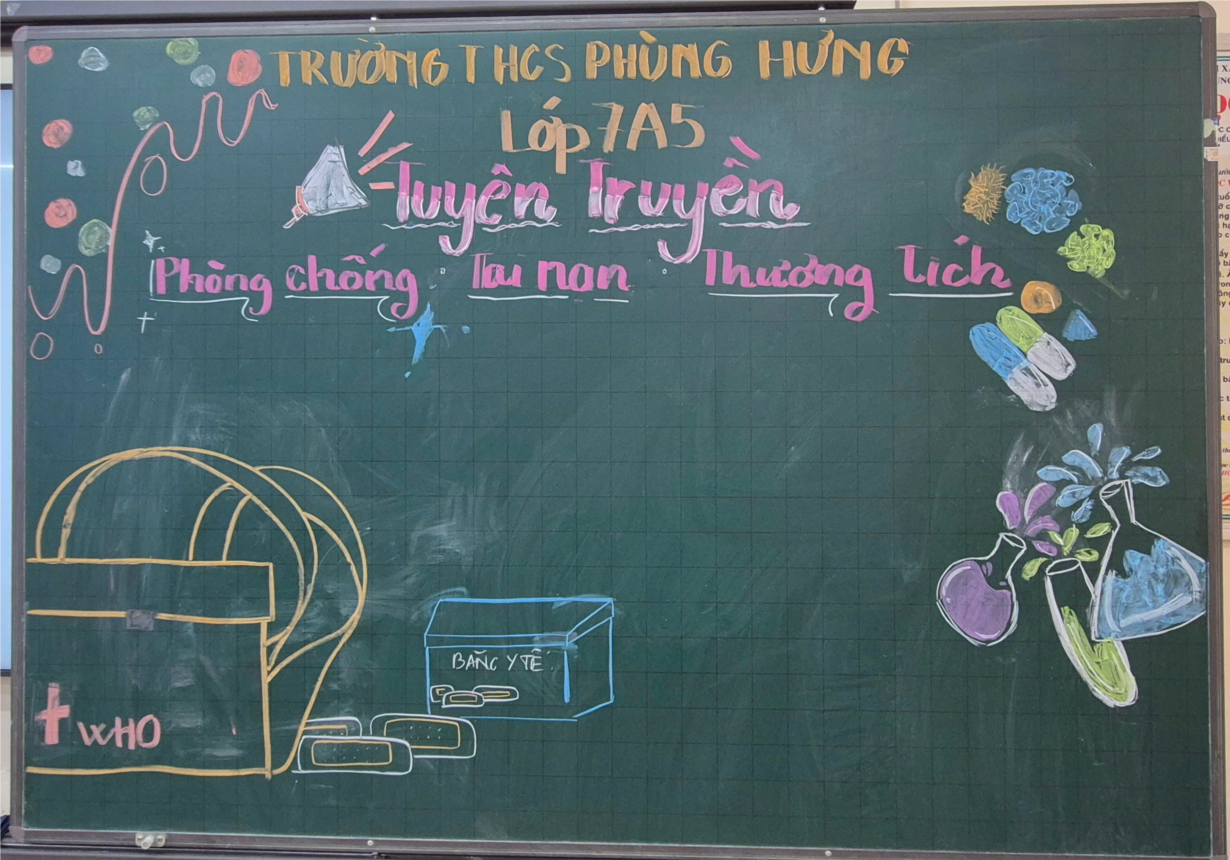 TRƯỜNG THCS PHÙNG HƯNG
Lớp 7A5
Tuyên Truyền
Phòng chống Tai nan Thương tích
BĂNG Y TẾ
WHO